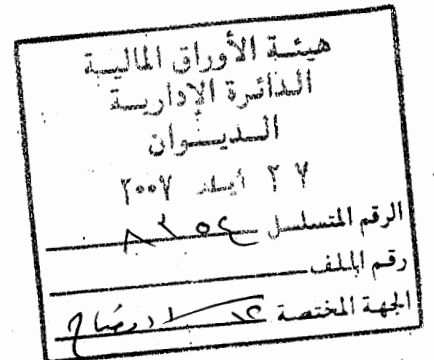 هيئة الأوراق المالية
الدائرة الإدارية
الديوان
٢٧ أيلول ٢٠٠٧
الرقم المتسلسل ٨٢٥٤
رقم الملف
الجهة المختصة الافصاح